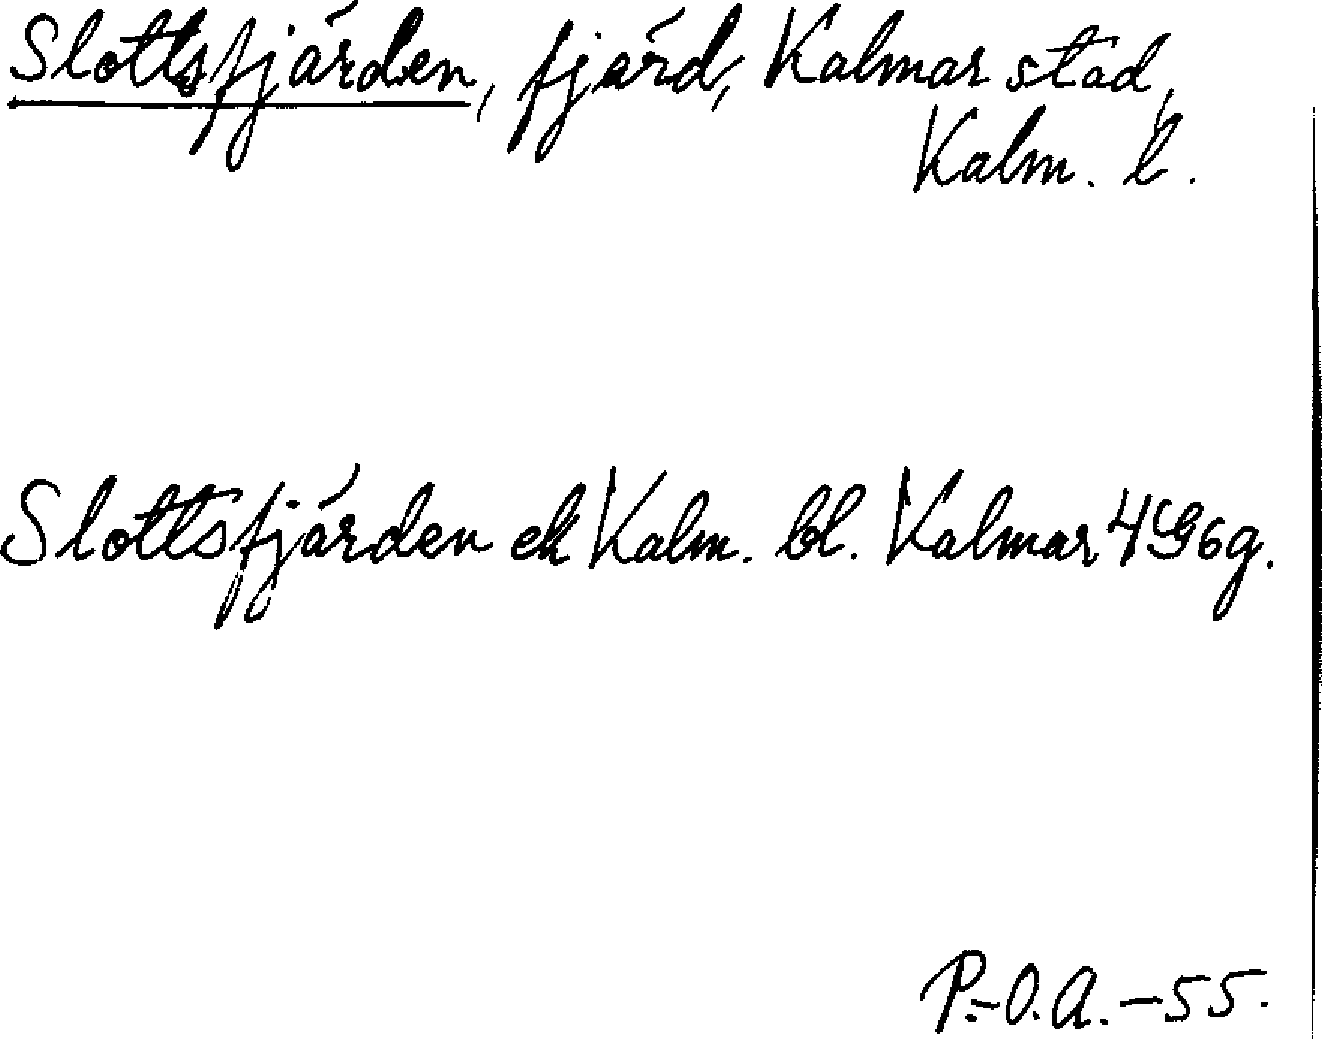 Slottsfjärden, fjärd, Kalmar stad,
Kalm. l.
Slottsfjärden ek Kalm. bl. Kalmar 4G6g.
P.-O.A.-55.